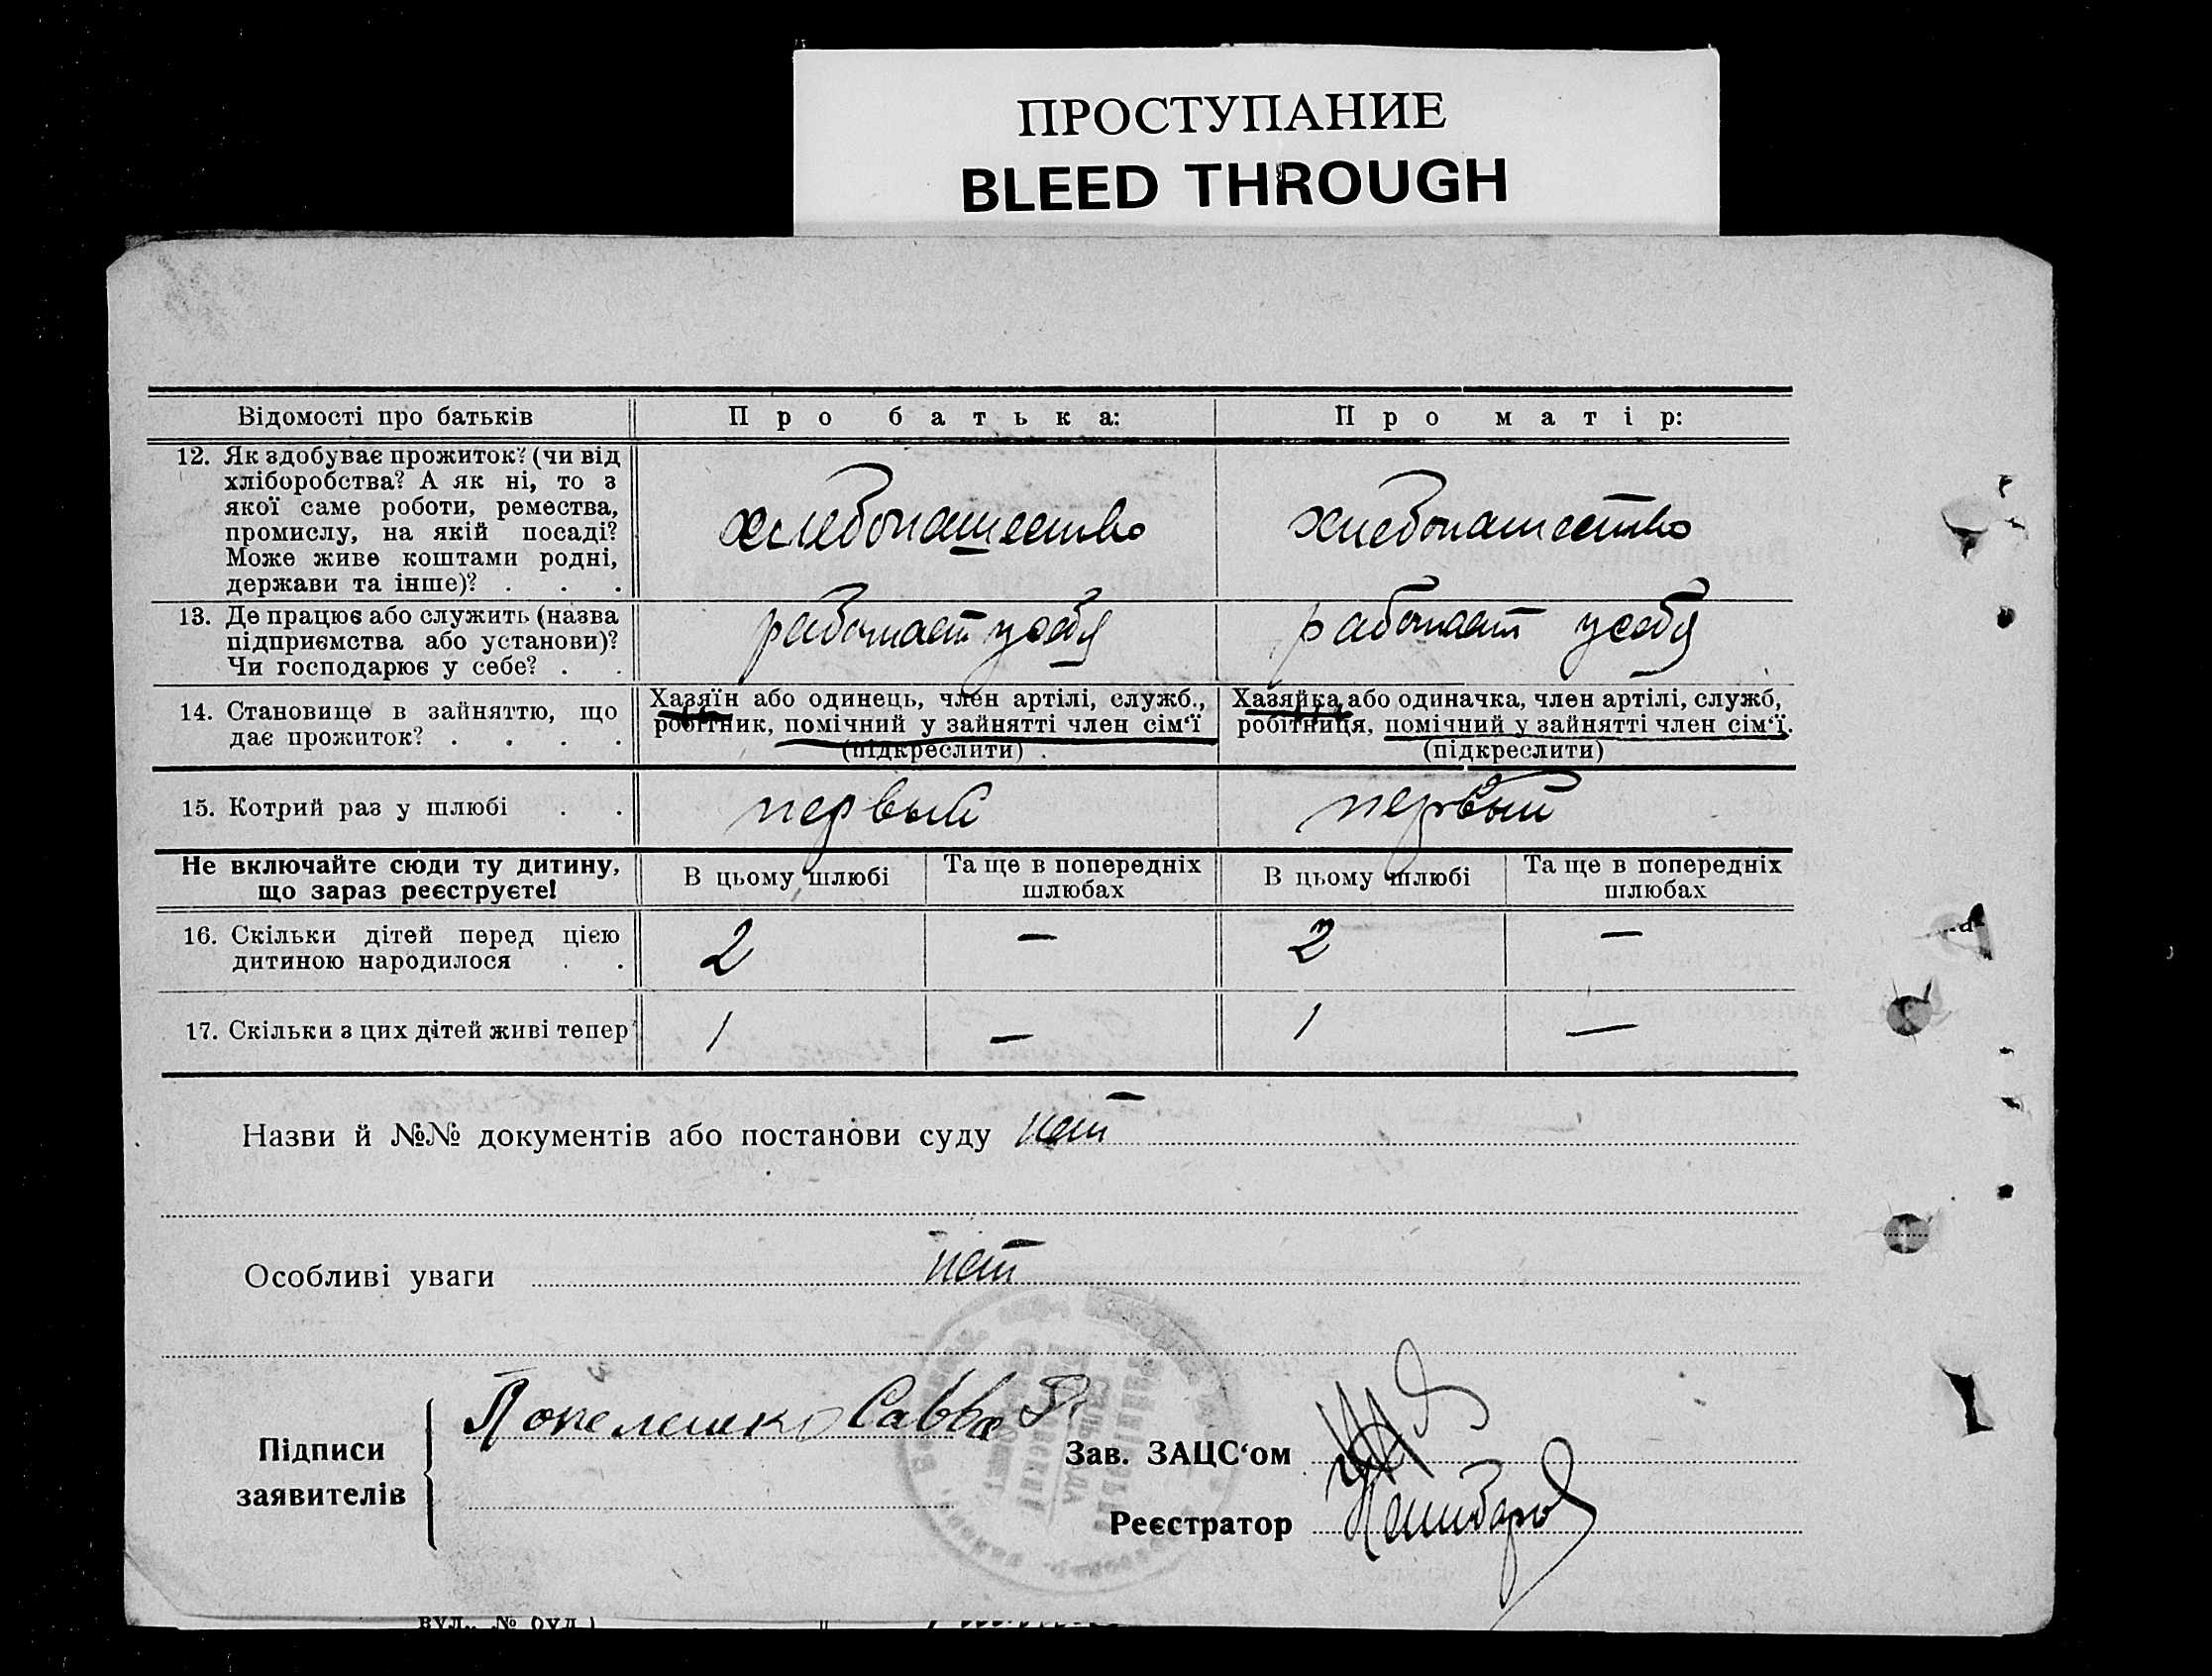 ПРОСТУПАНИЕ
BLEED THROUGH
Відомості про батьків
Про батька:
Про матір:
12. Як здобуває прожиток? (чи від
хліборобства? А як ні, то з
якої саме роботи, ремества,
промислу, на якій посаді?
Може живе коштами родні,
держави та інше)? . . .
хлебопашество
хлебопашество
13. Де працює або служить (назва
підприємства або установи)?
Чи господарює у себе? . .
работает у себя
работает у себя
14. Становище в зайняттю, що
дає прожиток? . . . .
Хазяїн або одинець, член артілі, служб.,
робітник, помічний у зайнятті член сім‘ї
(підкреслити) .
Хазяйка або одиначка, член артілі, служб,
робітниця, помічний у зайнятті член сім‘ї.
(підкреслити)
15. Котрий раз у шлюбі . .
первый
первый
Не включайте сюди ту дитину,
що зараз реєструєте!
В цьому шлюбі
Та ще в попередніх
шлюбах
В цьому шлюбі
Та ще в попередніх
шлюбах
16. Скільки дітей перед цією
дитиною народилося . .
2
—
2
—
17. Скільки з цих дітей живі тепер
1
—
1
—
Назви й №№ документів або постанови суду нет
Особливі уваги нет
Підписи
заявителів
Попелешко Савва
Зав. ЗАЦС‘ом
Реєстратор
вул., № буд.)